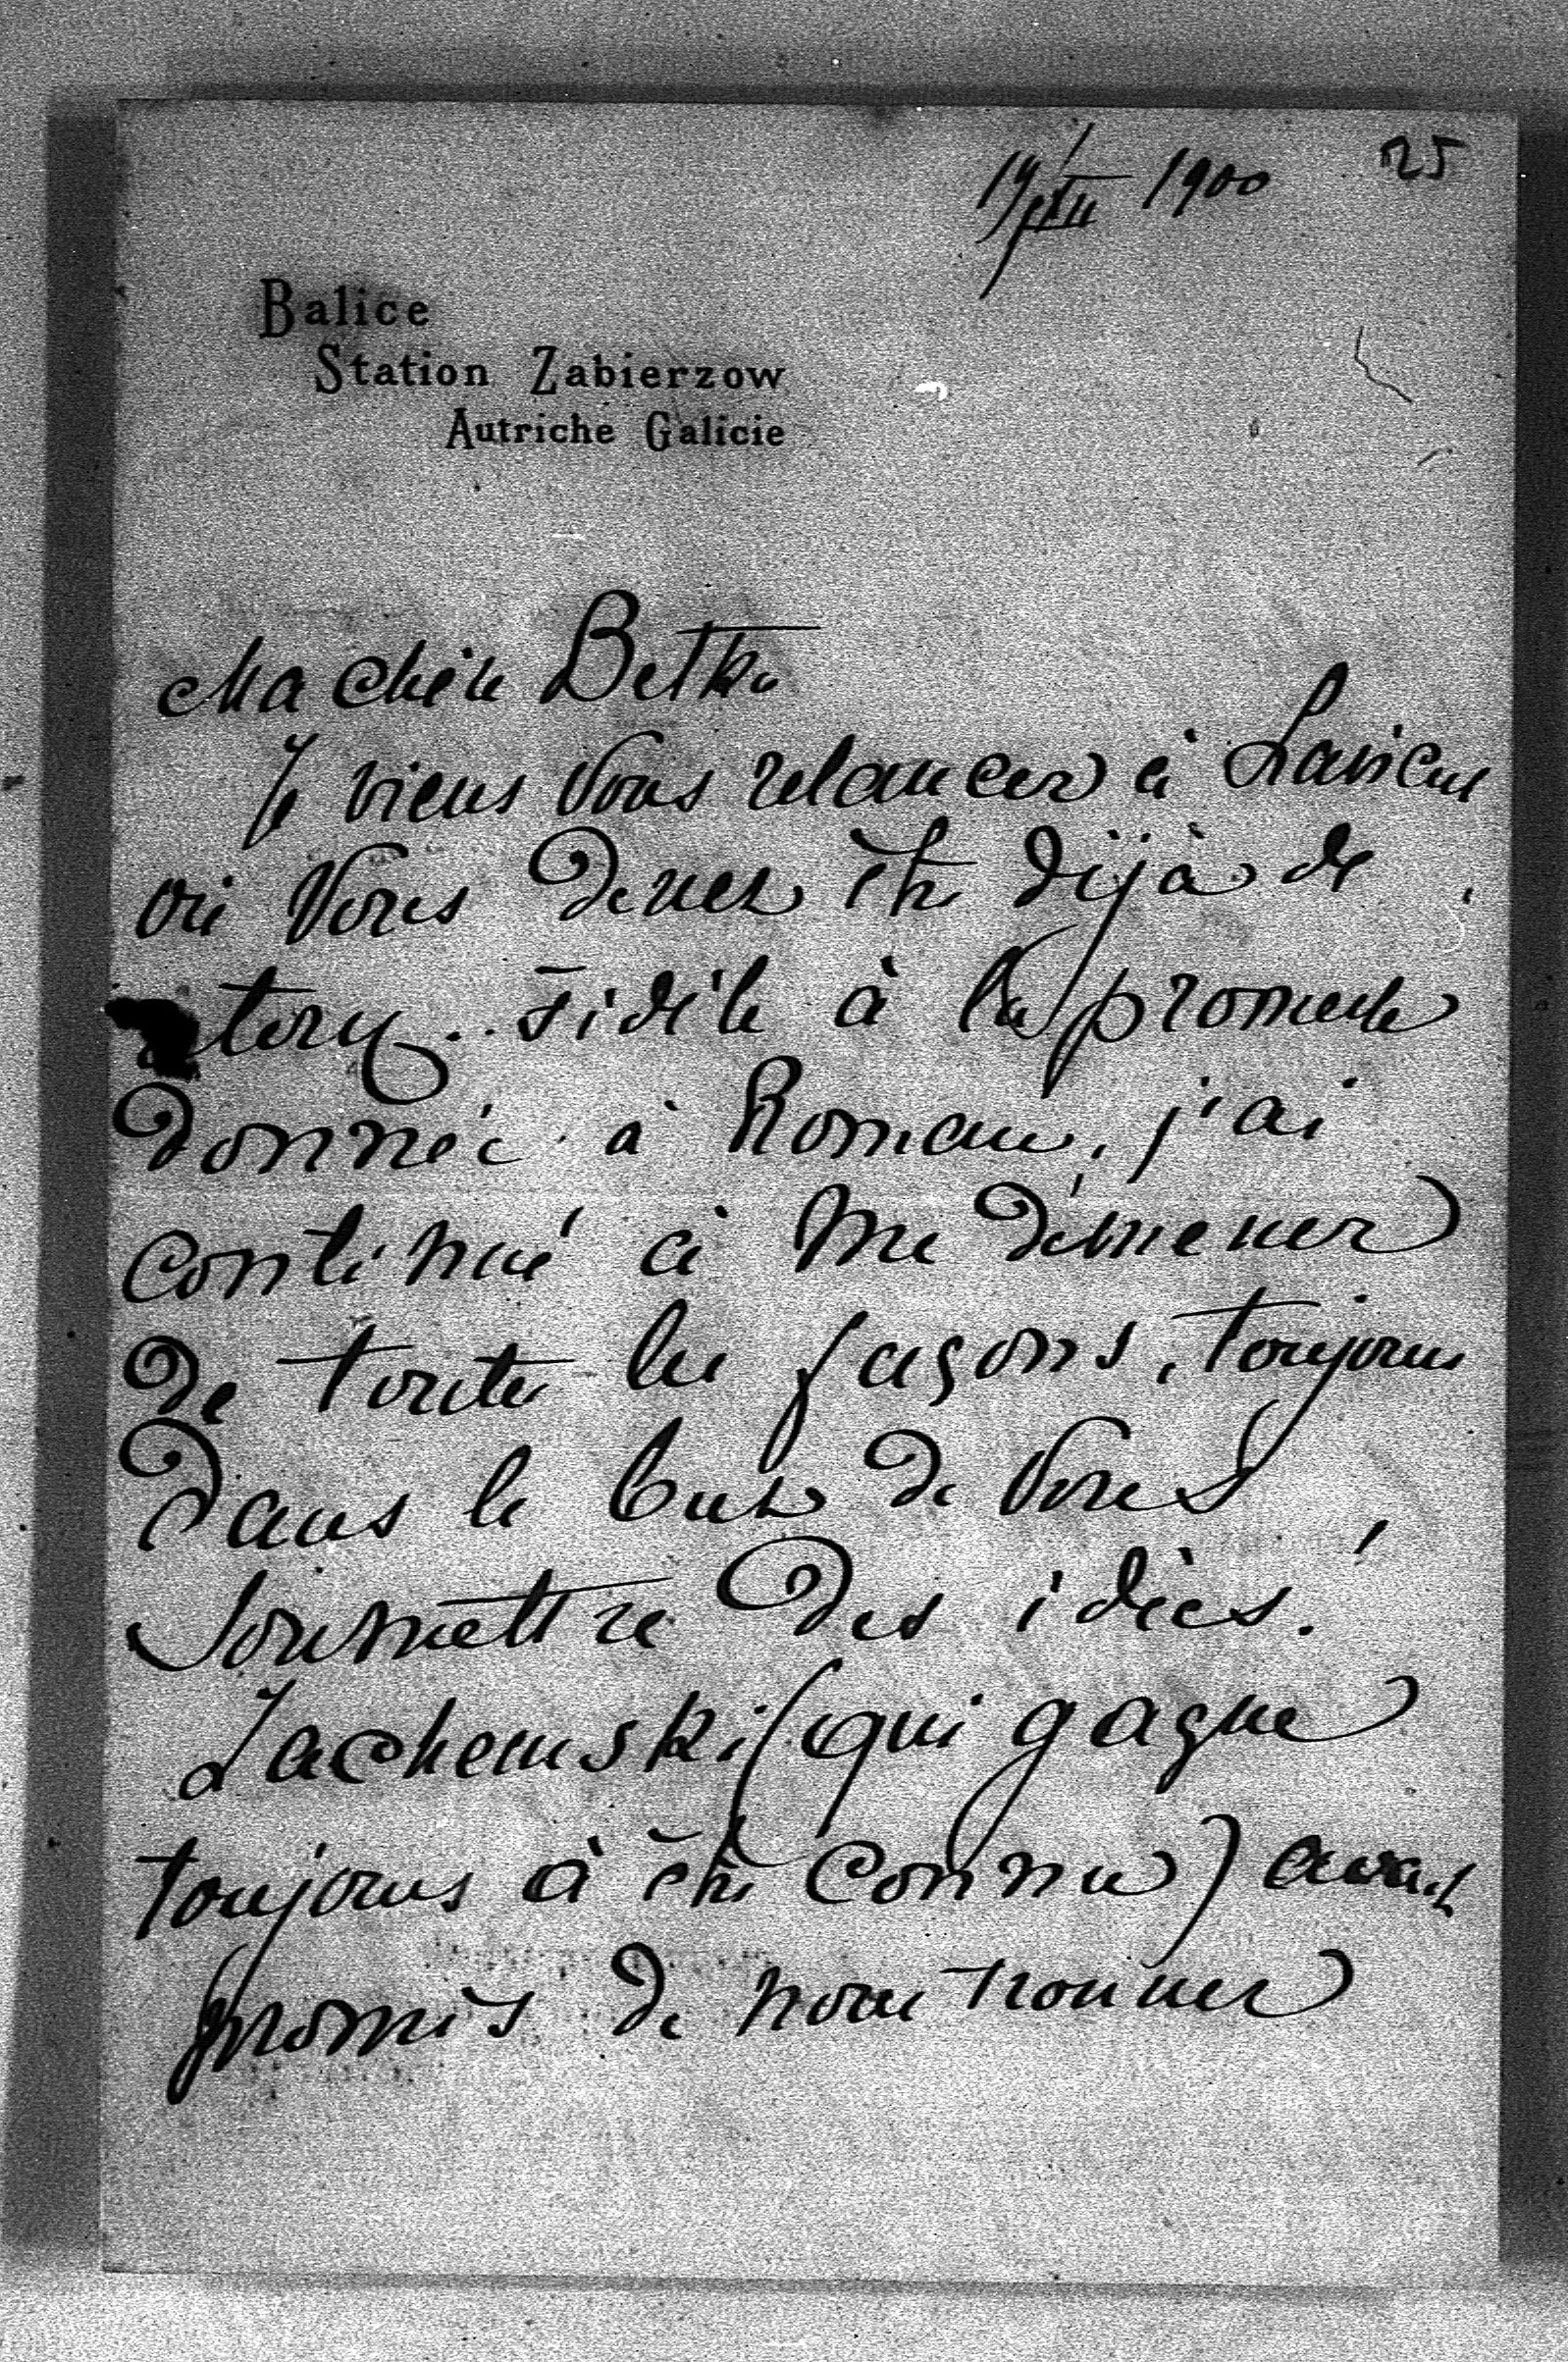 19/XII 1900
25
Balice
Station Zabierzow
Autriche Galicie
Ma chère Betka
Je viens Vous relancer à Lancut
où Vous devez être déjà de
Fidèle à la promesse
donnée à Roman, j'ai
continué à me démener
de toutes les façons, toujours
dans le but de Vous
soumettre des idées.
Zachemski (qui gagne
toujours à être connu) avait
promis de nous trouver